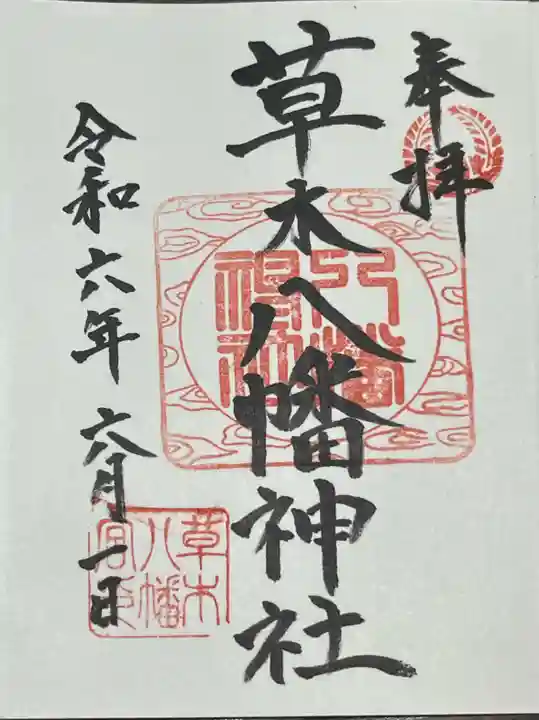 奉拝
草木八幡神社
八幡神社
令和六年六月一日
草木八幡宮